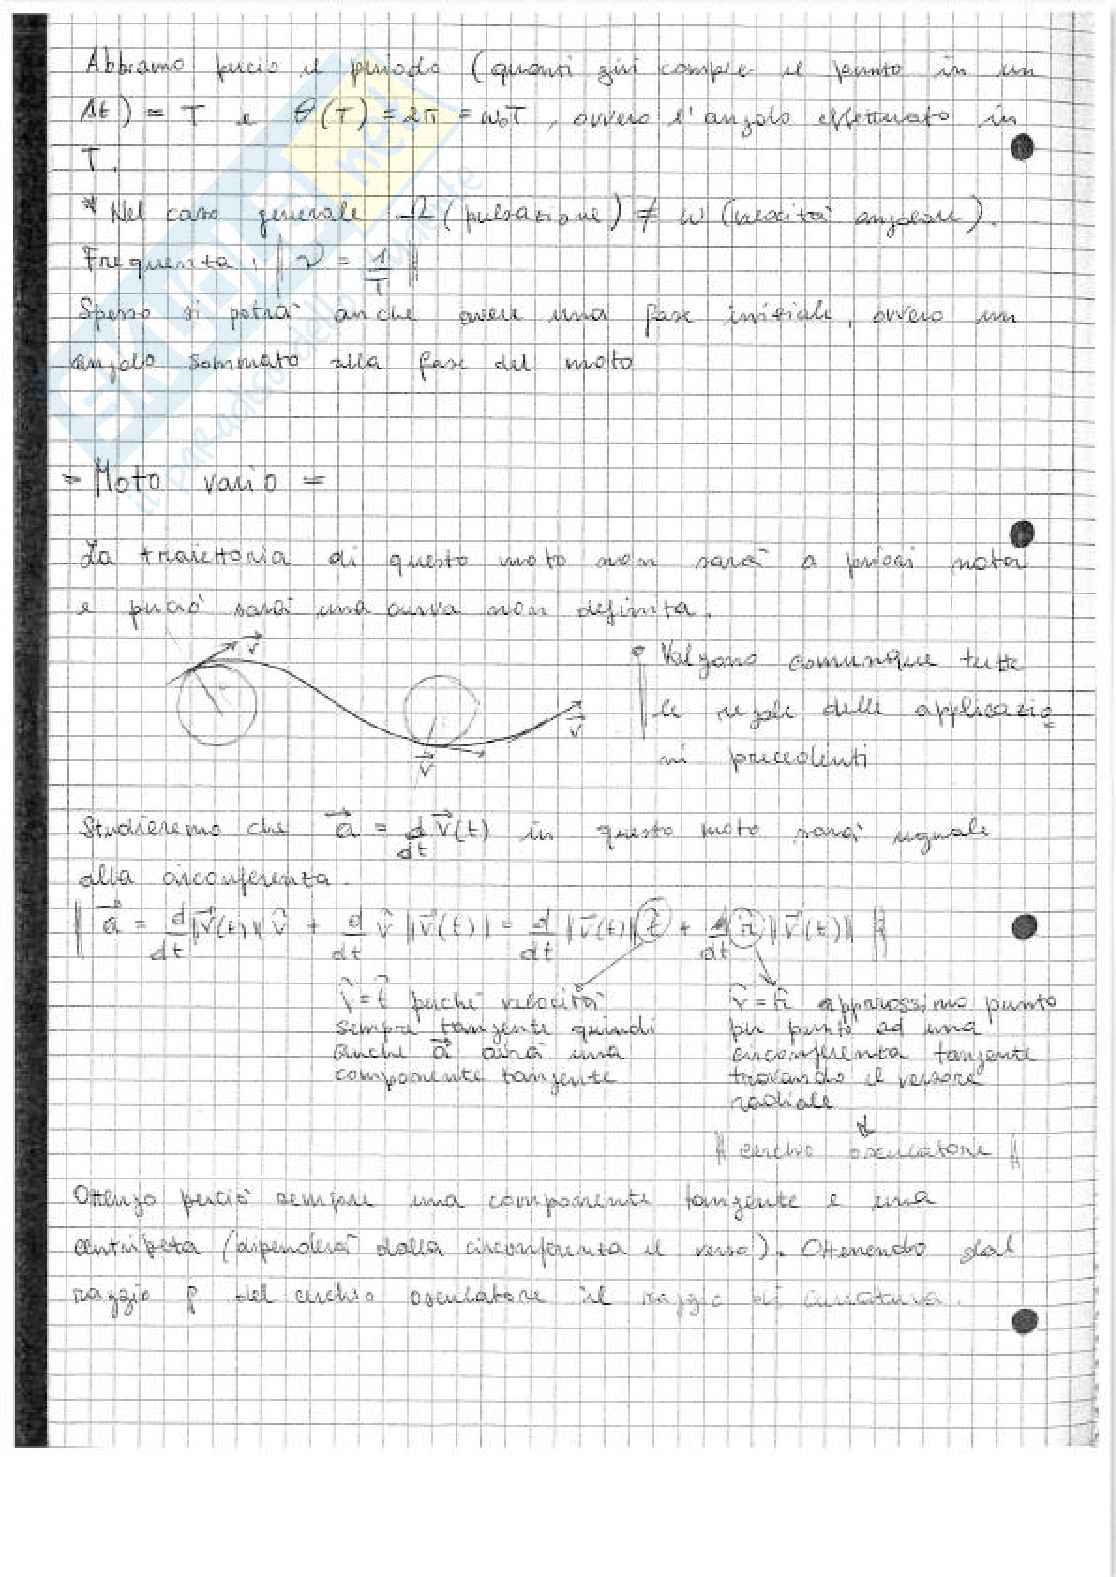 Abbiamo perciò il periodo (quanti giri compie il punto in un
Δt) = T e θ(T) = 2π = ω₀T, ovvero l'angolo effettuato in
T.
* Nel caso generale Ω (pulsazione) ≠ ω (velocità angolare).
Frequenza: ‖ ν = 1/T ‖
Spesso si potrà anche avere una fase iniziale, ovvero un
angolo sommato alla fase del moto
= Moto vario =
La traiettoria di questo moto non sarà a priori nota
e perciò sarà una curva non definita.
v⃗
Valgono comunque tutte
le regole delle applicazio
ni precedenti
v⃗
v⃗
Studieremo che a⃗ = d/dt v⃗(t) in questo moto sarà uguale
alla circonferenza.
‖ a⃗ = d/dt ‖v⃗(t)‖ v̂ + d/dt v̂ ‖v⃗(t)‖ = d/dt ‖v⃗(t)‖ t̂ + d/dt n̂ ‖v⃗(t)‖ ‖
v̂ = t̂ perché velocità
sempre tangente quindi
anche a⃗ avrà una
componente tangente
v̂ = n̂ approssimo punto
per punto ad una
circonferenza tangente
trovando il versore
radiale
‖ cerchio osculatore ‖
Ottengo perciò sempre una componente tangente e una
centripeta (dipenderà dalla circonferenza il verso). Ottenendo dal
raggio ρ del cerchio osculatore il raggio di curvatura.
SKUOLA.net
il paradiso dello studente